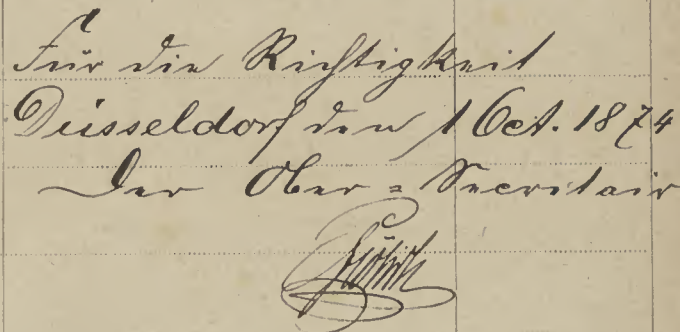 Für die Richtigkeit
Düsseldorf den 1 Oct. 1874
Der Ober = Secretair